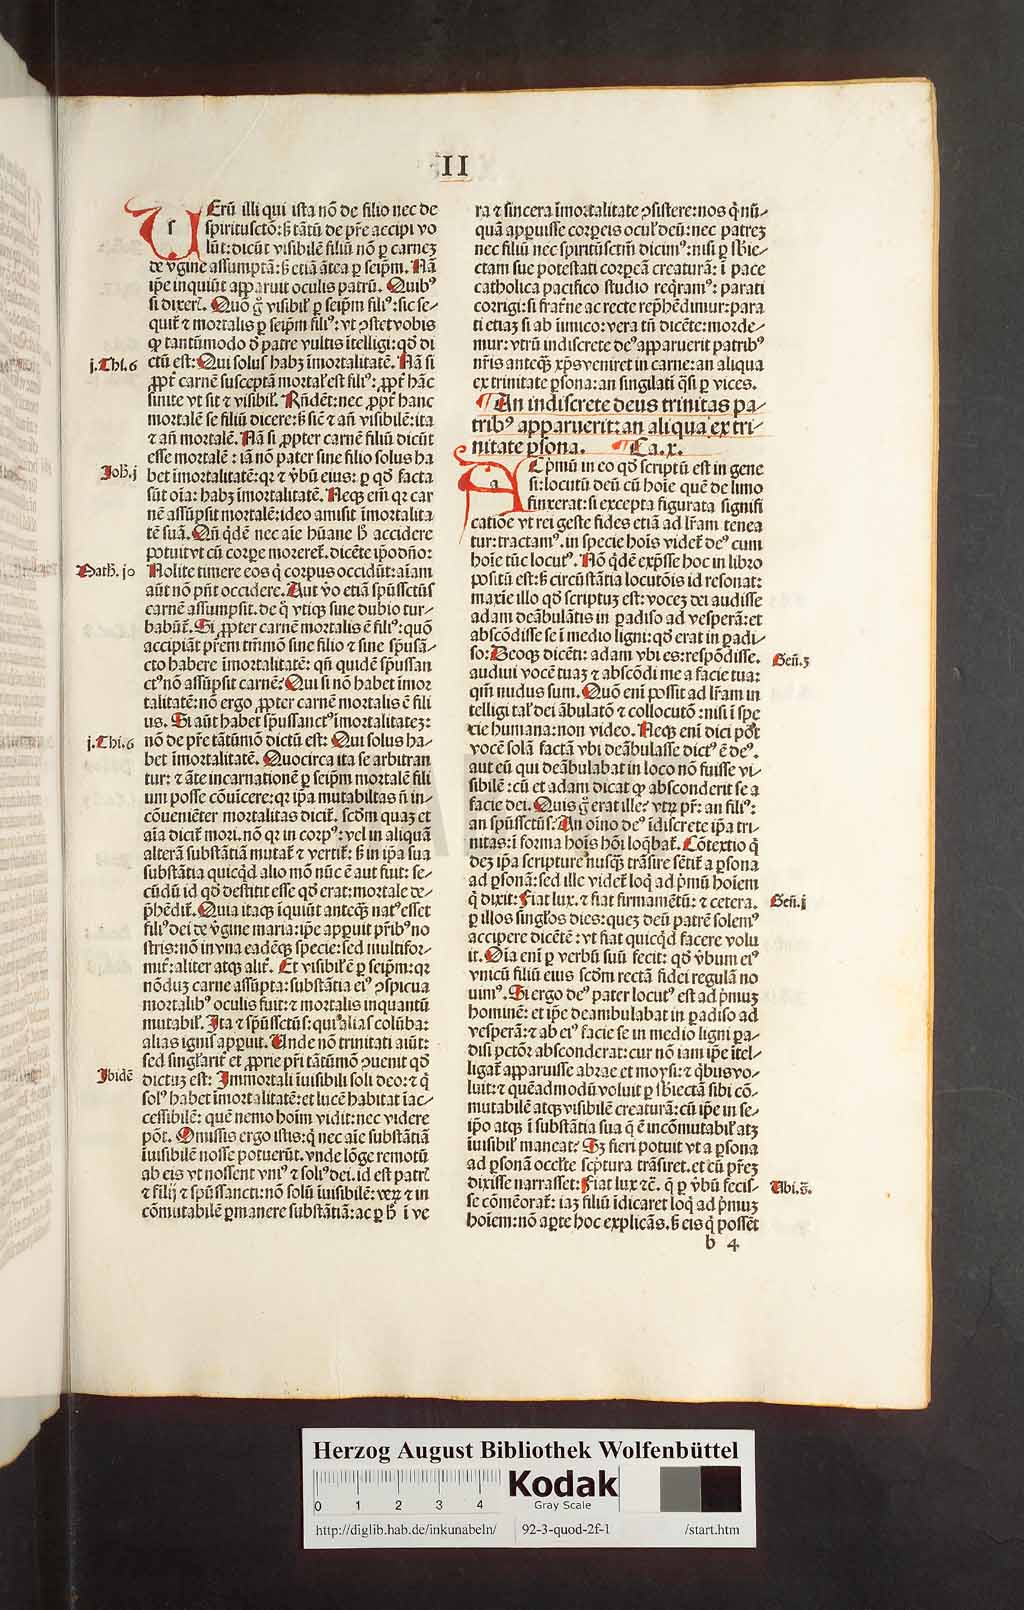 II
UErũ illi qui ista nõ de filio nec de
spiritusctõ: ß tãtũ de pr̃e accipi vo
lũt: dicũt visibilẽ filiũ nõ ꝑ carneꝫ
de v̓gine assumptã: ß etiã ãtea ꝑ seip̃m. Nã
ip̃e inquiũt apparuit oculis patrũ. Quibꝰ
si dixeri. Quõ g̊ visibil̓ ꝑ seip̃m filiꝰ: sic se-
quit̃ ⁊ mortalis ꝑ seip̃m filiꝰ: vt ꝯstet vobis
ꝙ tantũmodo ð patre vultis ĩtelligi: qð di
j.Thi.6
ctũ est: Qui solus habꝫ ĩmortalitatẽ. Nã si
ꝓpt̃ carnẽ susceptã mortal̓ est filiꝰ: ꝓpt̃ hãc
sinite vt sit ⁊ visibil̓. Rñdẽt: nec ꝓpt̃ hanc
mortalẽ se filiũ dicere: ß sic̃ ⁊ añ visibilẽ: ita
⁊ añ mortalẽ. Nã si ꝓpter carnẽ filiũ dicũt
esse mortalẽ: iã nõ pater sine filio solus ha
Joh̃.j
bet ĩmortalitatẽ: qꝛ ⁊ v̓bũ eius: ꝑ qð facta
sũt oĩa: habꝫ ĩmortalitatẽ. Neqꝫ em̃ qꝛ car
nẽ assũpsit mortalẽ: ideo amisit ĩmortalita
tẽ suã. Qñ q̇dẽ nec aĩe hũane h̓ accidere
potuit vt cũ corpe moreret̃. dicẽte ip̃o dño:
Math̃.jo
Nolite timere eos q̇ corpus occidũt: aĩam
aũt nõ pñt occidere. Aut v̓o etiã sp̃ussctũs
carnẽ assumpsit. de q̇ vtiqꝫ sine dubio tur-
babũt̃. Si ꝓpter carnẽ mortalis ẽ filiꝰ: quõ
accipiãt pr̃em tm̃mõ sine filio ⁊ sine sp̃usã-
cto habere ĩmortalitatẽ: qñ quidẽ sp̃ussan
ctꝰ nõ assũpsit carnẽ? Qui si nõ habet ĩmor
talitatẽ: nõ ergo ꝓpter carnẽ mortalis ẽ fili
us. Si aũt habet sp̃ussanctꝰ ĩmortalitateꝫ:
j.Thi.6
nõ de pr̃e tãtũmõ dictũ est: Qui solus ha-
bet ĩmortalitatẽ. Quocirca ita se arbitran
tur: ⁊ ãte incarnationẽ ꝑ seip̃m mortalẽ fili
um posse cõuĩcere: qꝛ ip̃a mutabilitas ñ in-
cõueniẽter mortalitas dicit̃. scðm quaꝫ et
aĩa dicit̃ mori. nõ qꝛ in corpꝰ: vel in aliquã
alterã substãtiã mutat̃ ⁊ vertit̃: ß in ip̃a sua
substãtia quicq̇d alio mõ nũc ẽ aut fuit: se-
cũdũ id qð destitit esse qð erat: mortale de-
p̃hẽdit̃. Quia itaqꝫ iquiũt anteqꝫ natꝰ esset
filiꝰ dei de v̓gine maria: ip̃e apparuit pr̃ibꝰ no
stris: nõ in vna eadẽqꝫ specie: sed multifor-
mit̃: aliter atqꝫ alit̃. Et visibil̓ ẽ ꝑ seip̃m: qꝛ
nõduꝫ carne assũpta: substãtia eiꝰ ꝯspicua
mortalibꝰ oculis fuit: ⁊ mortalis inquantũ
mutabil̓. Ita ⁊ sp̃ussctũs: qui alias colũba:
alias ignis apparuit. Unde nõ trinitati aiũt:
sed singlarit̃ et ꝓprie pr̃i tãtũmõ ꝯuenit qð
Ibidẽ
dictuꝫ est: Immortali ĩuisibili soli deo: ⁊ q̇
solꝰ habet ĩmortalitatẽ: et lucẽ habitat iac-
cessibilẽ: quẽ nemo hoĩm vidit: nec videre
põt. Omissis ergo istis: q̇ nec aĩe substãtiã
ĩuisibilẽ nosse potuerũt. vnde lõge remotũ
ab eis vt nossent vniꝰ ⁊ soliꝰ dei. id est patrl̓
⁊ filij ⁊ sp̃ussancti: nõ solũ ĩuisibilẽ: veꝝ ⁊ in
cõmutabilẽ ꝑmanere substãtiã: ac ꝑ h̓ i ve
ra ⁊ sincera ĩmortalitate ꝯsistere: nos q̇ nũ-
quã apparuisse corpeis ocul̓ deũ: nec patreꝫ
nec filiũ nec spiritũsctm̃ dicimꝰ: nisi ꝑ sb̓ie-
ctam sue potestati corpeã creaturã: i pace
catholica pacifico studio req̇ramꝰ: parati
corrigi: si frat̃ne ac recte rep̃hẽdimur: para
ti etiaꝫ si ab inimico: vera tñ dicẽte: morde-
mur: vtrũ indiscrete deꝰ apparuerit patribꝰ
nr̃is anteqꝫ xp̃s veniret in carne: an aliqua
ex trinitate ꝑsona: an singlati q̇si ꝑ vices.
¶ An indiscrete deus trinitas pa-
tribꝰ apparuerit: an aliqua ex tri-
nitate ꝑsona. ¶ Ca.x.
AC p̃mũ in eo qð scriptũ est in gene
si: locutũ deũ cũ hoĩe quẽ de limo
finxerat: si excepta figurata signifi
catiõe vt rei geste fides etiã ad lr̃am tenea
tur: tractamꝰ. in specie hoĩs videt̃ deꝰ cum
hoĩe tũc locutꝰ. Nõ q̇dẽ exp̃sse hoc in libro
positũ est: ß circũstãtia locutõis id resonat:
maxie illo qð scriptuꝫ est: voceꝫ dei audisse
adam deãbulãtis in ꝑadiso ad vesperã: et
abscõdisse se ĩ medio ligni: qð erat in ꝑadi-
Geñ.3
so: Deoqꝫ dicẽti: adam vbi es: respõdisse.
audiui vocẽ tuaꝫ ⁊ abscõdi me a facie tua:
qm̃ nudus sum. Quõ em̃ possit ad lr̃am in
telligi tal̓ dei ãbulatõ ⁊ collocutõ: nisi ĩ spe
cie humana: non video. Neqꝫ em̃ dici põt
vocẽ solã factã vbi deãbulasse dictꝰ ẽ deꝰ.
aut eũ qui deãbulabat in loco nõ fuisse vi-
sibilẽ: cũ et adam dicat ꝙ absconderit se a
facie dei. Quis g̊ erat ille? vtꝝ pr̃: an filiꝰ:
an sp̃ussctũs? An oĩno deꝰ ĩdiscrete ip̃a tri-
nitas: ĩ forma hoĩs hoĩ loq̃bat̃. Cõtextio q̇
deꝫ ip̃a scripture nusq̃ꝫ trãsire sẽtit̃ a ꝑsona
ad ꝑsonã: sed ille videt̃ loq̇ ad p̃mũ hoĩem
Geñ.j
q̇ dixit: Fiat lux. ⁊ fiat firmamẽtũ: ⁊ cetera.
ꝑ illos singl̓os dies: queꝫ deũ patrẽ solemꝰ
accipere dicẽtẽ: vt fiat quicq̇d facere volu
it. Oĩa em̃ ꝑ verbũ suũ fecit: qð v̓bum eiꝰ
vnicũ filiũ eius scðm rectã fidei regulã no
uimꝰ. Si ergo deꝰ pater locutꝰ est ad p̃muꝫ
hominẽ: et ip̃e deambulabat in ꝑadiso ad
vesperã: ⁊ ab eiꝰ facie se in medio ligni ꝑa-
disi pctõr absconderat: cur nõ iam ip̃e ĩtel-
ligat̃ apparuisse abrae et moysi: ⁊ q̇bus vo-
luit: ⁊ quẽadmodũ voluit ꝑ sb̓iectã sibi cõ-
mutabilẽ atqꝫ visibilẽ creaturã: cũ ip̃e in se-
ip̃o atqꝫ ĩ substãtia sua q̇ ẽ incõmutabil̓ atqꝫ
ĩuisibil̓ maneat? Sꝫ fieri potuit vt a ꝑsona
ad ꝑsonã occl̓te sc̃ptura trãsiret. et cũ pr̃eꝫ
Ubi.s̃.
dixisse narrasset: Fiat lux ⁊c̃. q̇ ꝑ v̓bũ fecis-
se cõmẽorat̃: iaꝫ filiũ ĩdicaret loq̇ ad p̃muꝫ
hoĩem: nõ aꝑte hoc explicãs. ß eis q̇ possẽt
b 4
Herzog August Bibliothek Wolfenbüttel
0 1 2 3 4
Kodak
Gray Scale
http://diglib.hab.de/inkunabeln/ 92-3-quod-2f-1 /start.htm